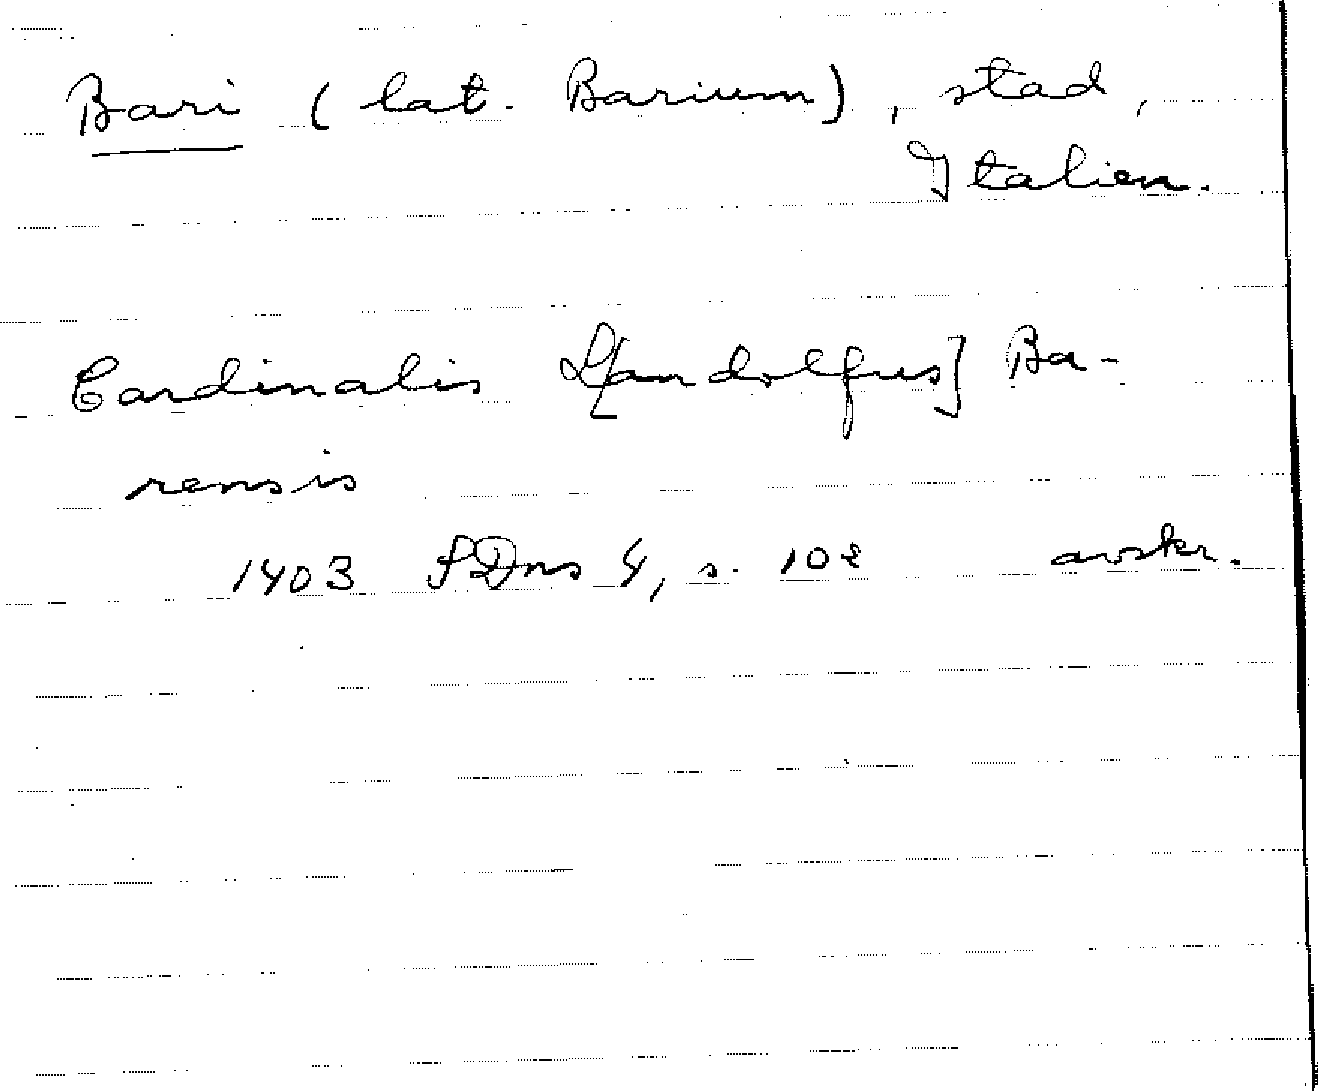 Bari (lat. Barium), stad,
Italien.
Cardinalis L[andolfus] Ba-
rensis
1403 SDns 4, s. 102 avskr.